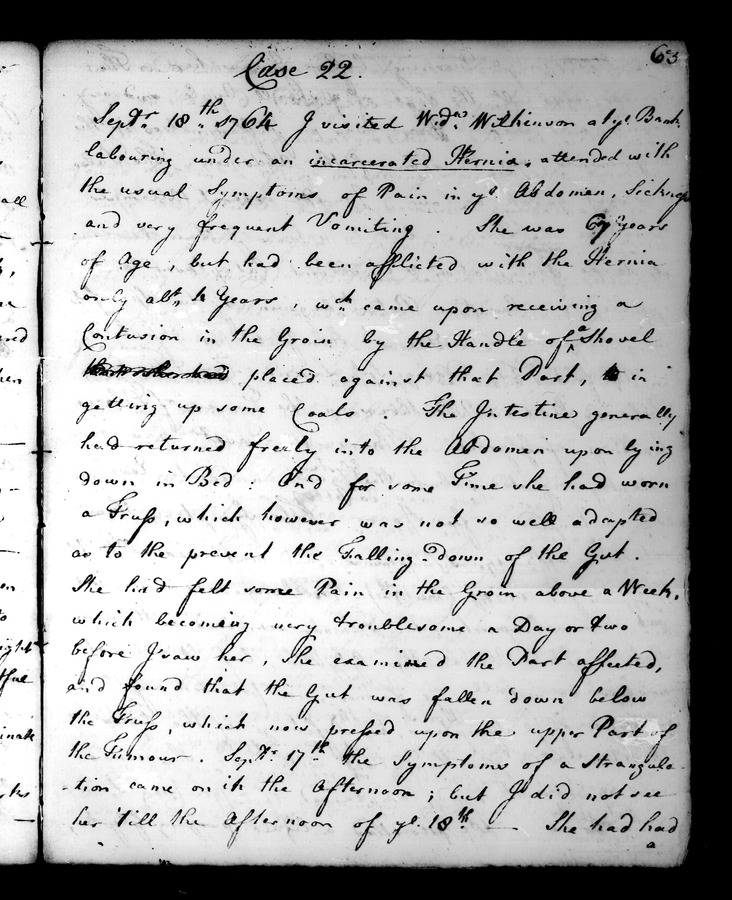 63
Case 22.
Septr. 18th. 1764 I visited Wdw. Wilkinson at ye Bank,
labouring under an incarcerated Hernia, attended with
the usual Symptoms of Pain in ye. Abdomen, Sickness
and very frequent Vomiting. She was 67 Years
of Age, but had been afflicted with the Hernia
only abt. 4 Years, wch. came upon receiving a
Contusion in the Groin by the Handle of a Shovel
placed against that Part, in
getting up some Coals. The Intestine generally
had returned freely into the Abdomen upon lying
down in Bed: And for some Time she had worn
a Truss, which however was not so well adapted
as to the prevent the Falling-down of the Gut.
She had felt some Pain in the Groin above a Week,
which becoming very troublesome a Day or two
before I saw her, She examined the Part affected,
and found that the Gut was fallen down below
the Truss, which now pressed upon the upper Part of
the Tumour. Septr. 17th. the Symptoms of a Strangula-
-tion came on in the Afternoon; but I did not see
her 'till the Afternoon of ye. 18th. — She had had
a